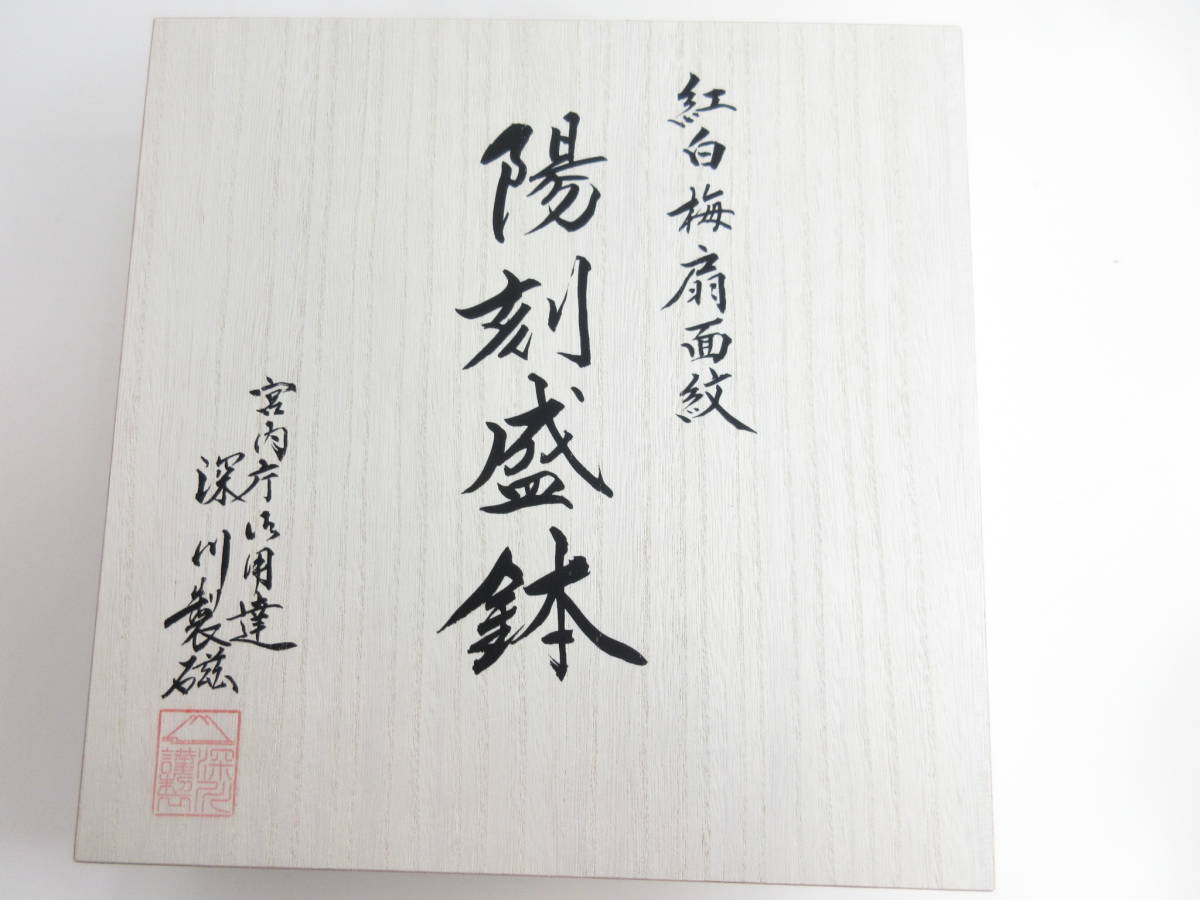 紅白梅扇面紋
陽刻盛鉢
宮内庁御用達
深川製磁
深川
謹製